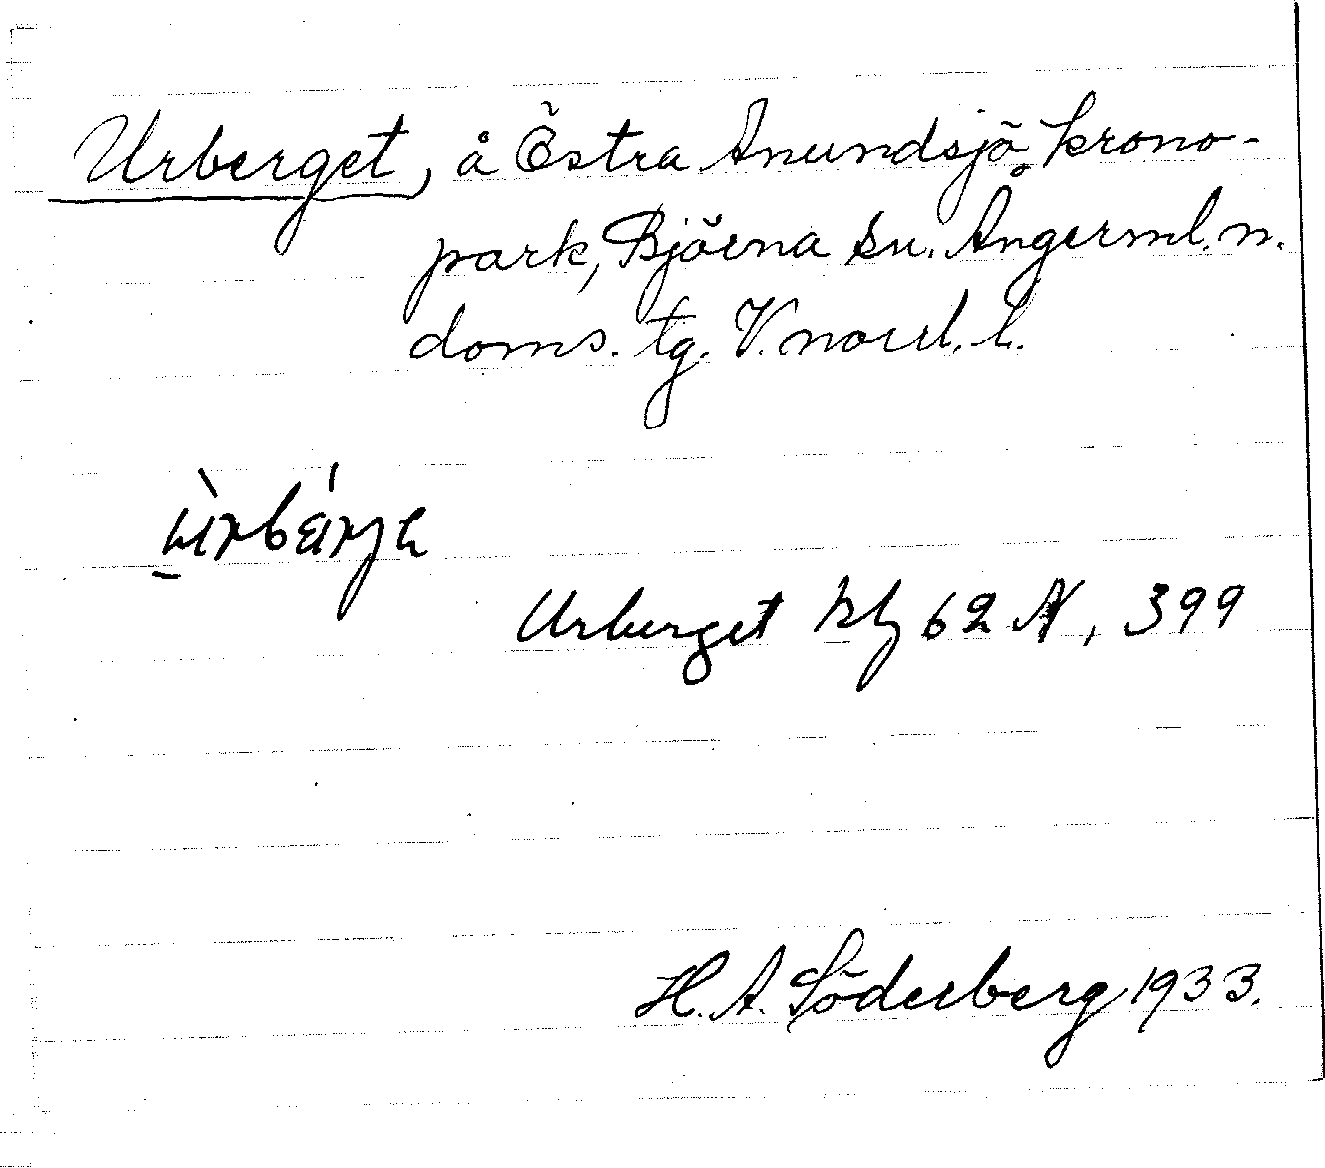 Urberget, å Östra Anundsjö krono-
park, Björna sn. Ångerml. n.
doms. tg. V. norrl. l.
Urberget kbl 62 N, 399
H. A. Söderberg 1933.